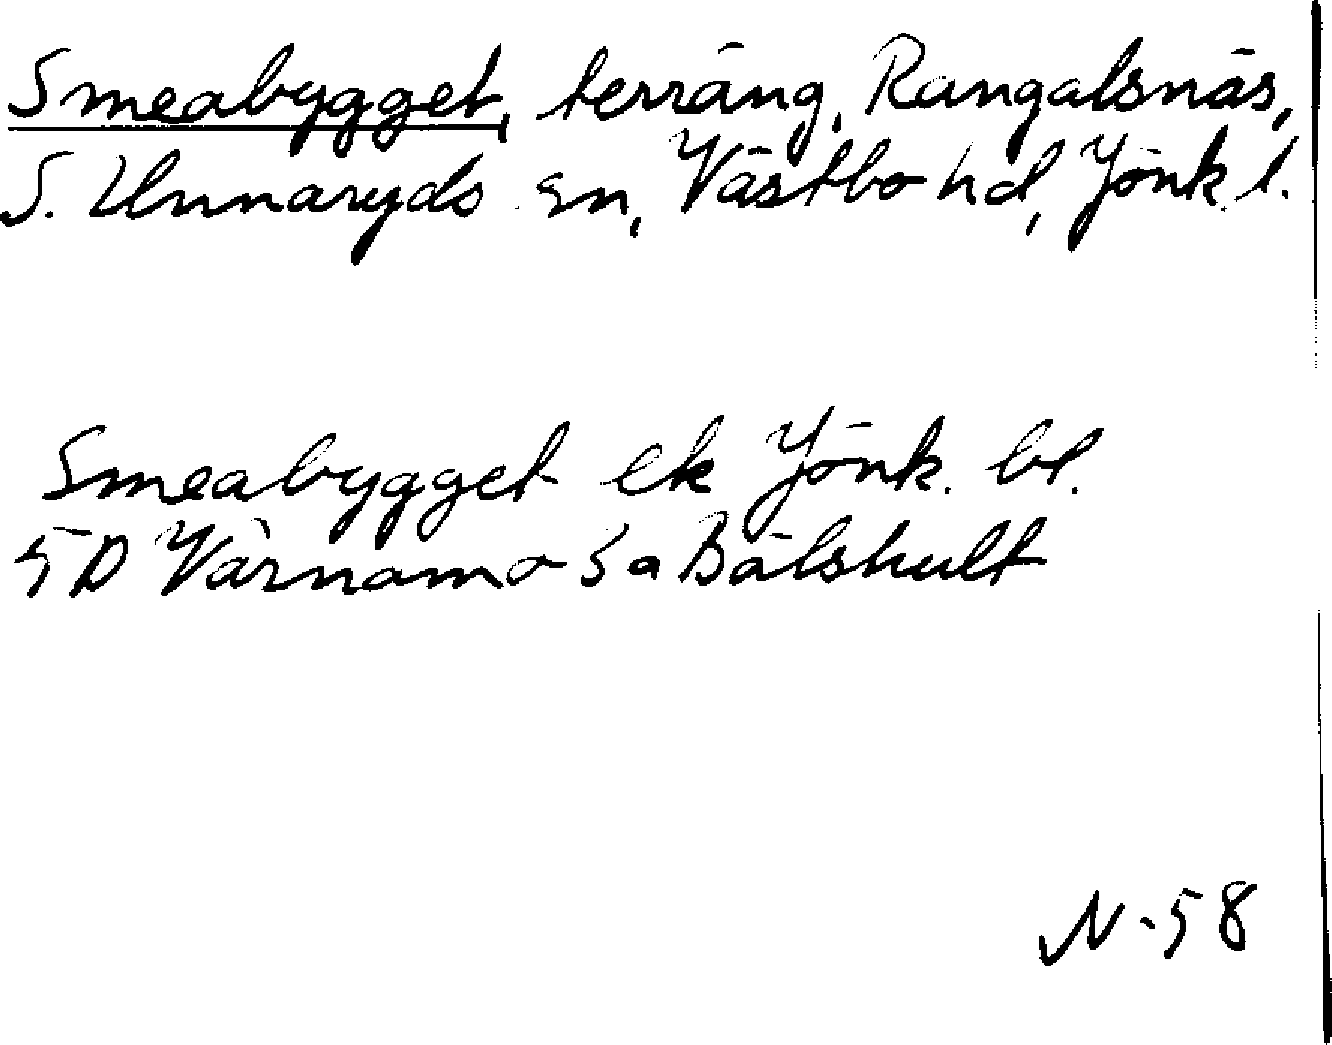 Smeabygget, terräng, Rangalsnäs,
S. Unnaryds sn, Västbo hd, Jönk. l.
Smeabygget ek Jönk. bl.
5D Värnamo 3a Bälshult
N-58